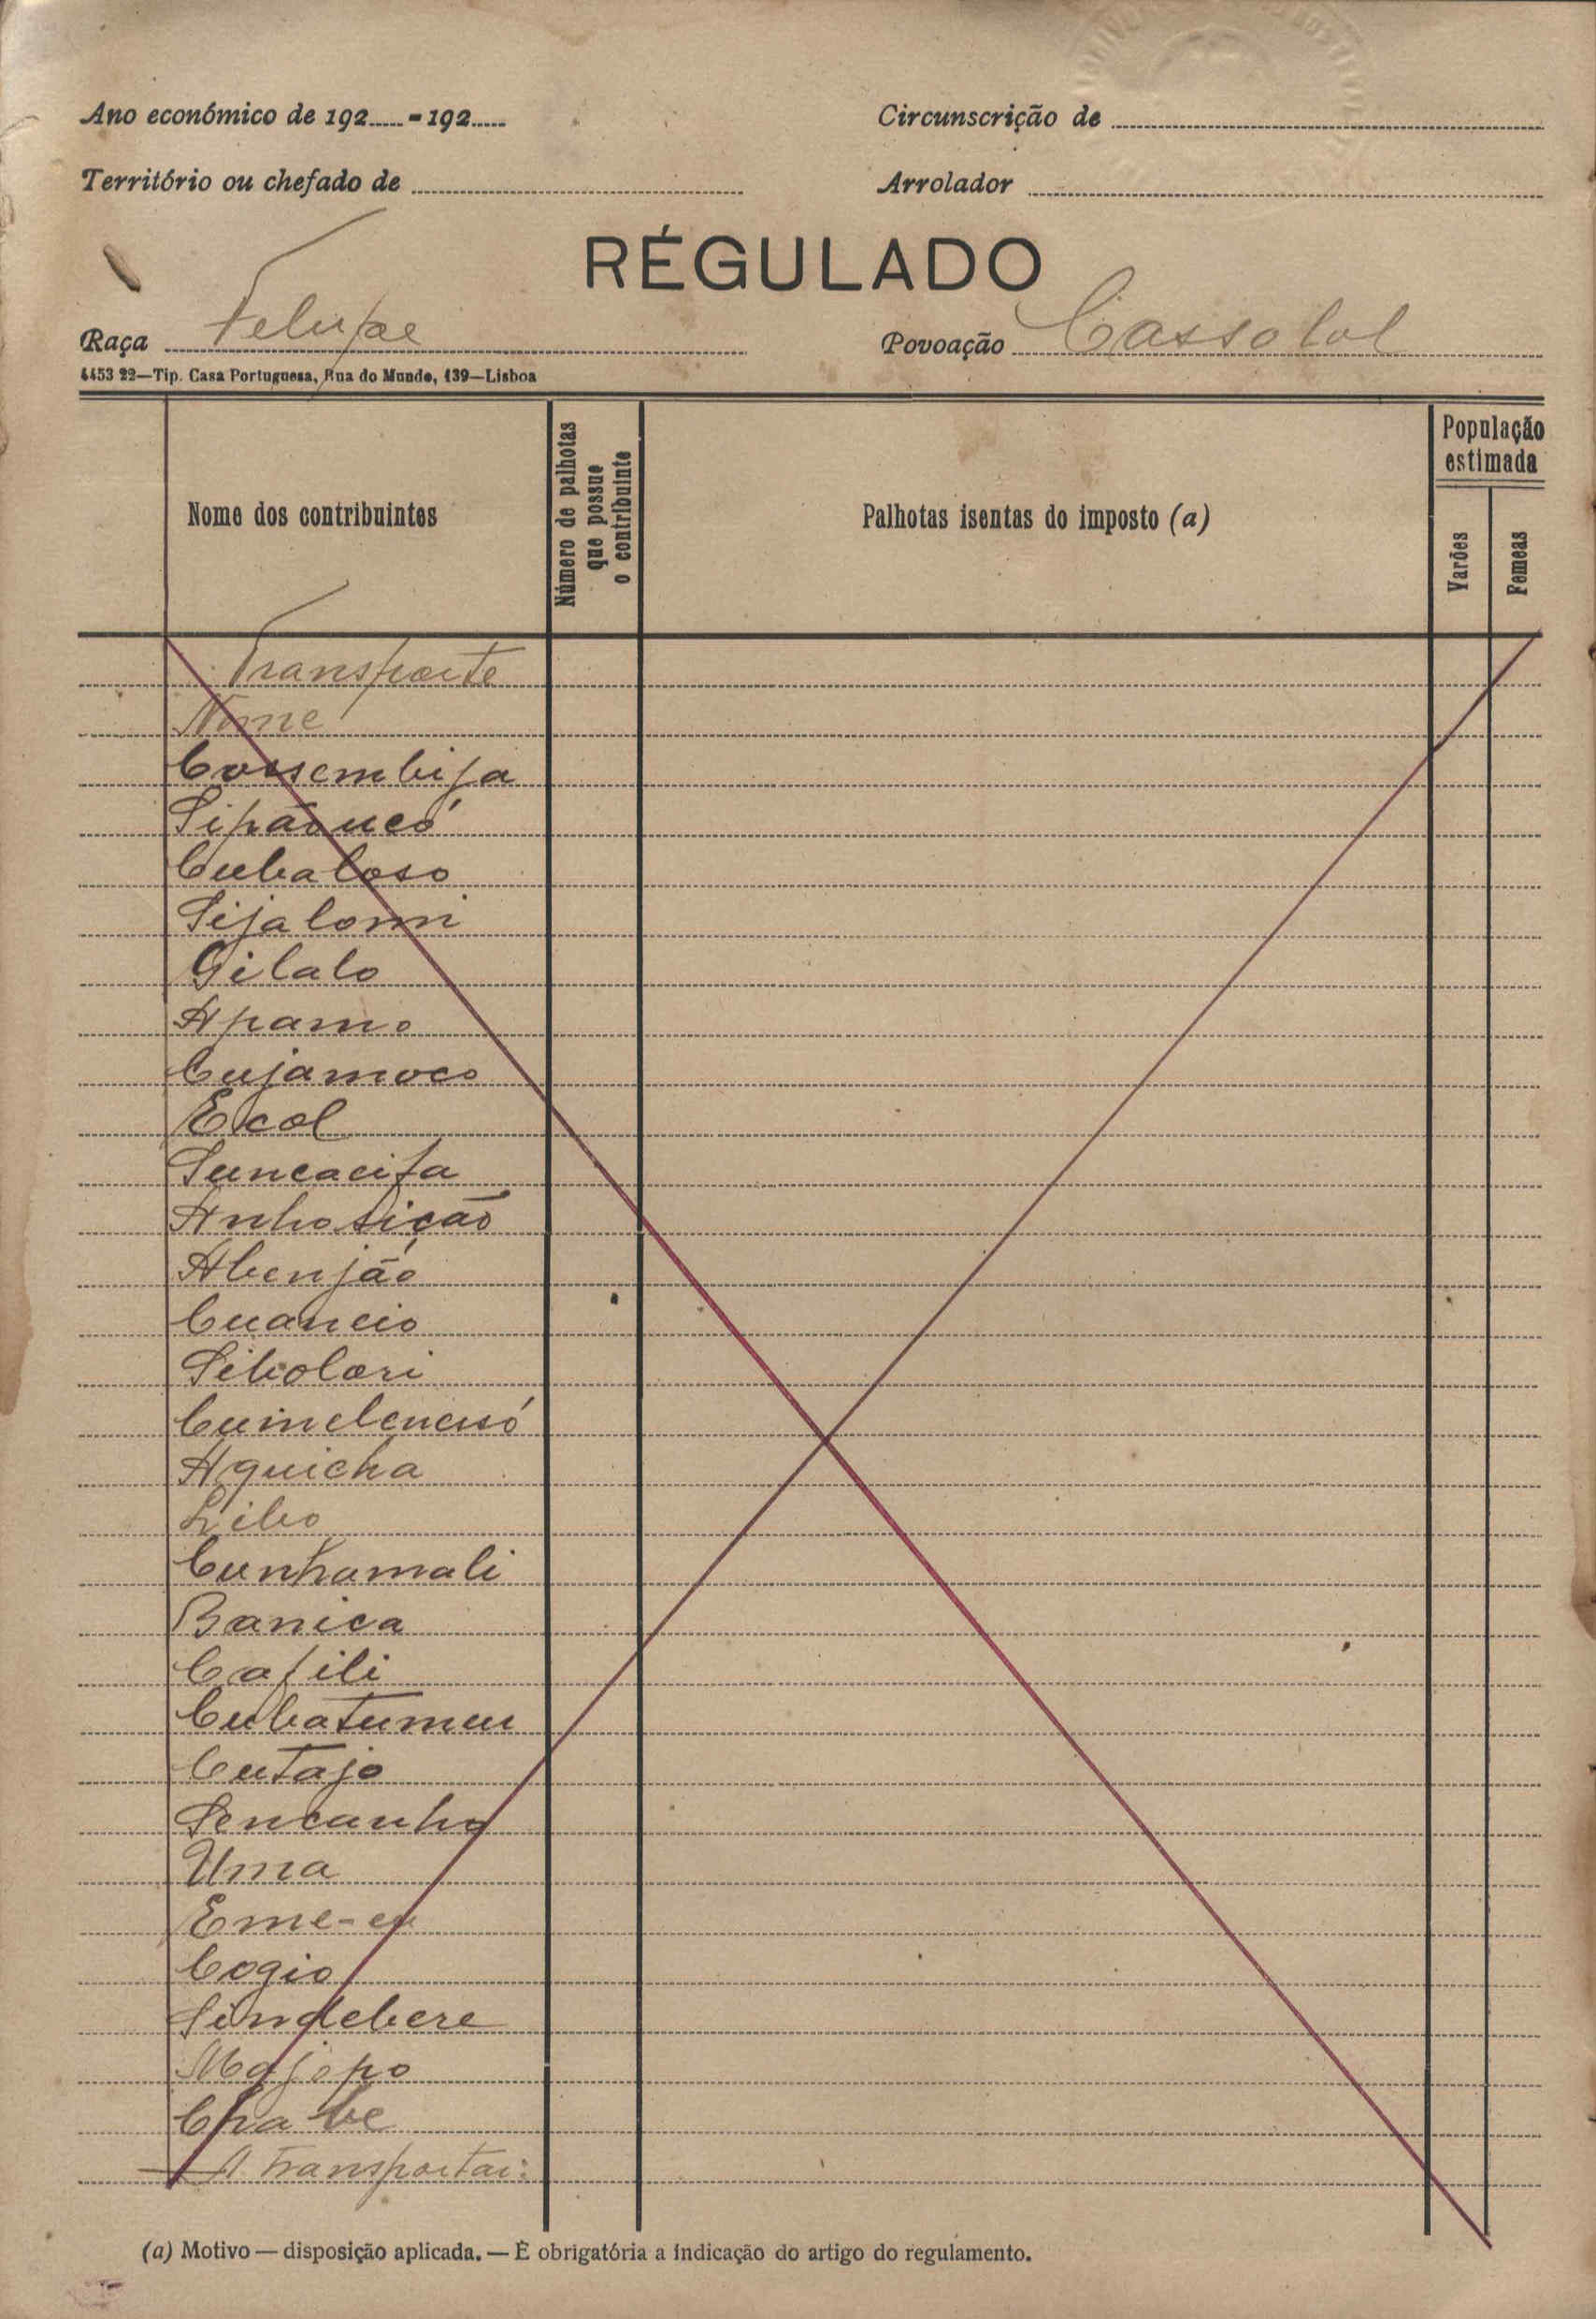 Ano económico de 192..... - 192.....
Circunscrição de
Território ou chefado de
Arrolador
RÉGULADO
Raça Felupe
Povoação Cassolol
4453 22—Tip. Casa Portuguesa, Rua do Mundo, 139—Lisboa
Nome dos contribuintes
Número de palhotas que possue o contribuinte
Palhotas isentas do imposto (a)
População estimada
Varões
Femeas
Transporte
Nome
Sipãoucó
Cubaloso
Sijalomi
Gilalo
Apamo
Cujamoco
Ecol
Suncacifa
Anhosição
Abenjão
Cuancio
Sibolori
Aquicha
Libo
Cunhamali
Banica
Cafili
Cubatumeu
Cutajo
Sencanho
Uma
Eme-eu
Cogio
Sindebere
Majopo
Chabe
A transportar:
(a) Motivo — disposição aplicada. — É obrigatória a indicação do artigo do regulamento.